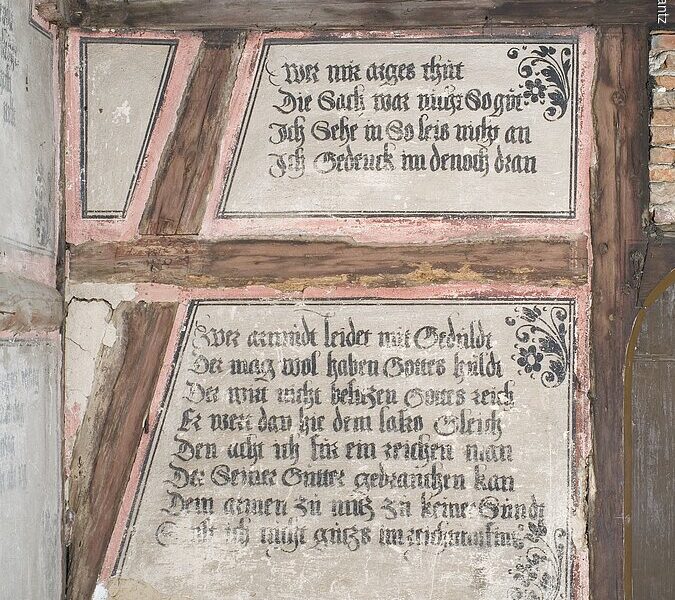 Wer mir arges thut
Die Sach war nicht So gut
Ich Sehe in So leis nicht an
Ich Gedenck im denoch dran
Wer armudt leidet mit Geduldt
Der mag wol haben Gottes huldt
Der wirt nicht besitzen Gottes reich
Er wert dan hie dem Gleich
Den acht ich für ein reichen man
Der Seiner Gütter gebrauchen kan
Dem armen zu nutz zu keiner Sündt
ich nicht gutzs im
antz